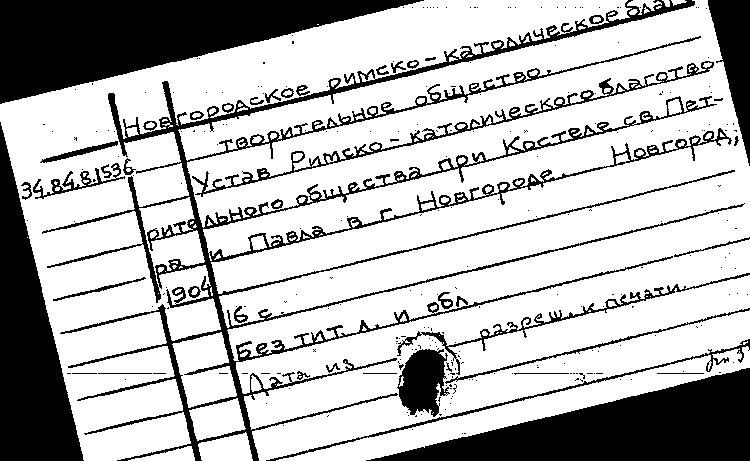 Новгородское римско-католическое благо
творительное общество.
34.84.8.1536
Устав Римско-католического благотво-
рительного общества при Костеле св. Пет-
ра и Павла в г. Новгороде. Новгород,
1904.
16 с.
Без тит. л. и обл.
Дата из разреш. к печати.